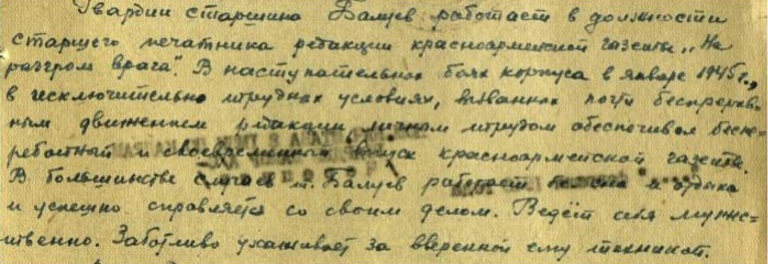 Гвардии старшина Балуев работает в должности
старшего печатника редакции красноармейской газеты „На
разгром врага". В наступательных боях корпуса в январе 1945 г.,
в исключительно трудных условиях, вызванных почти беспрерыв-
ным движением редакции личным трудом обеспечивал беспе-
ребойный и своевременный выпуск красноармейской газеты.
В большинстве случаев т. Балуев работает без сна и отдыха
и успешно справляется со своим делом. Ведёт себя мужс=
ственно. Заботливо ухаживает за вверенной ему техникой.